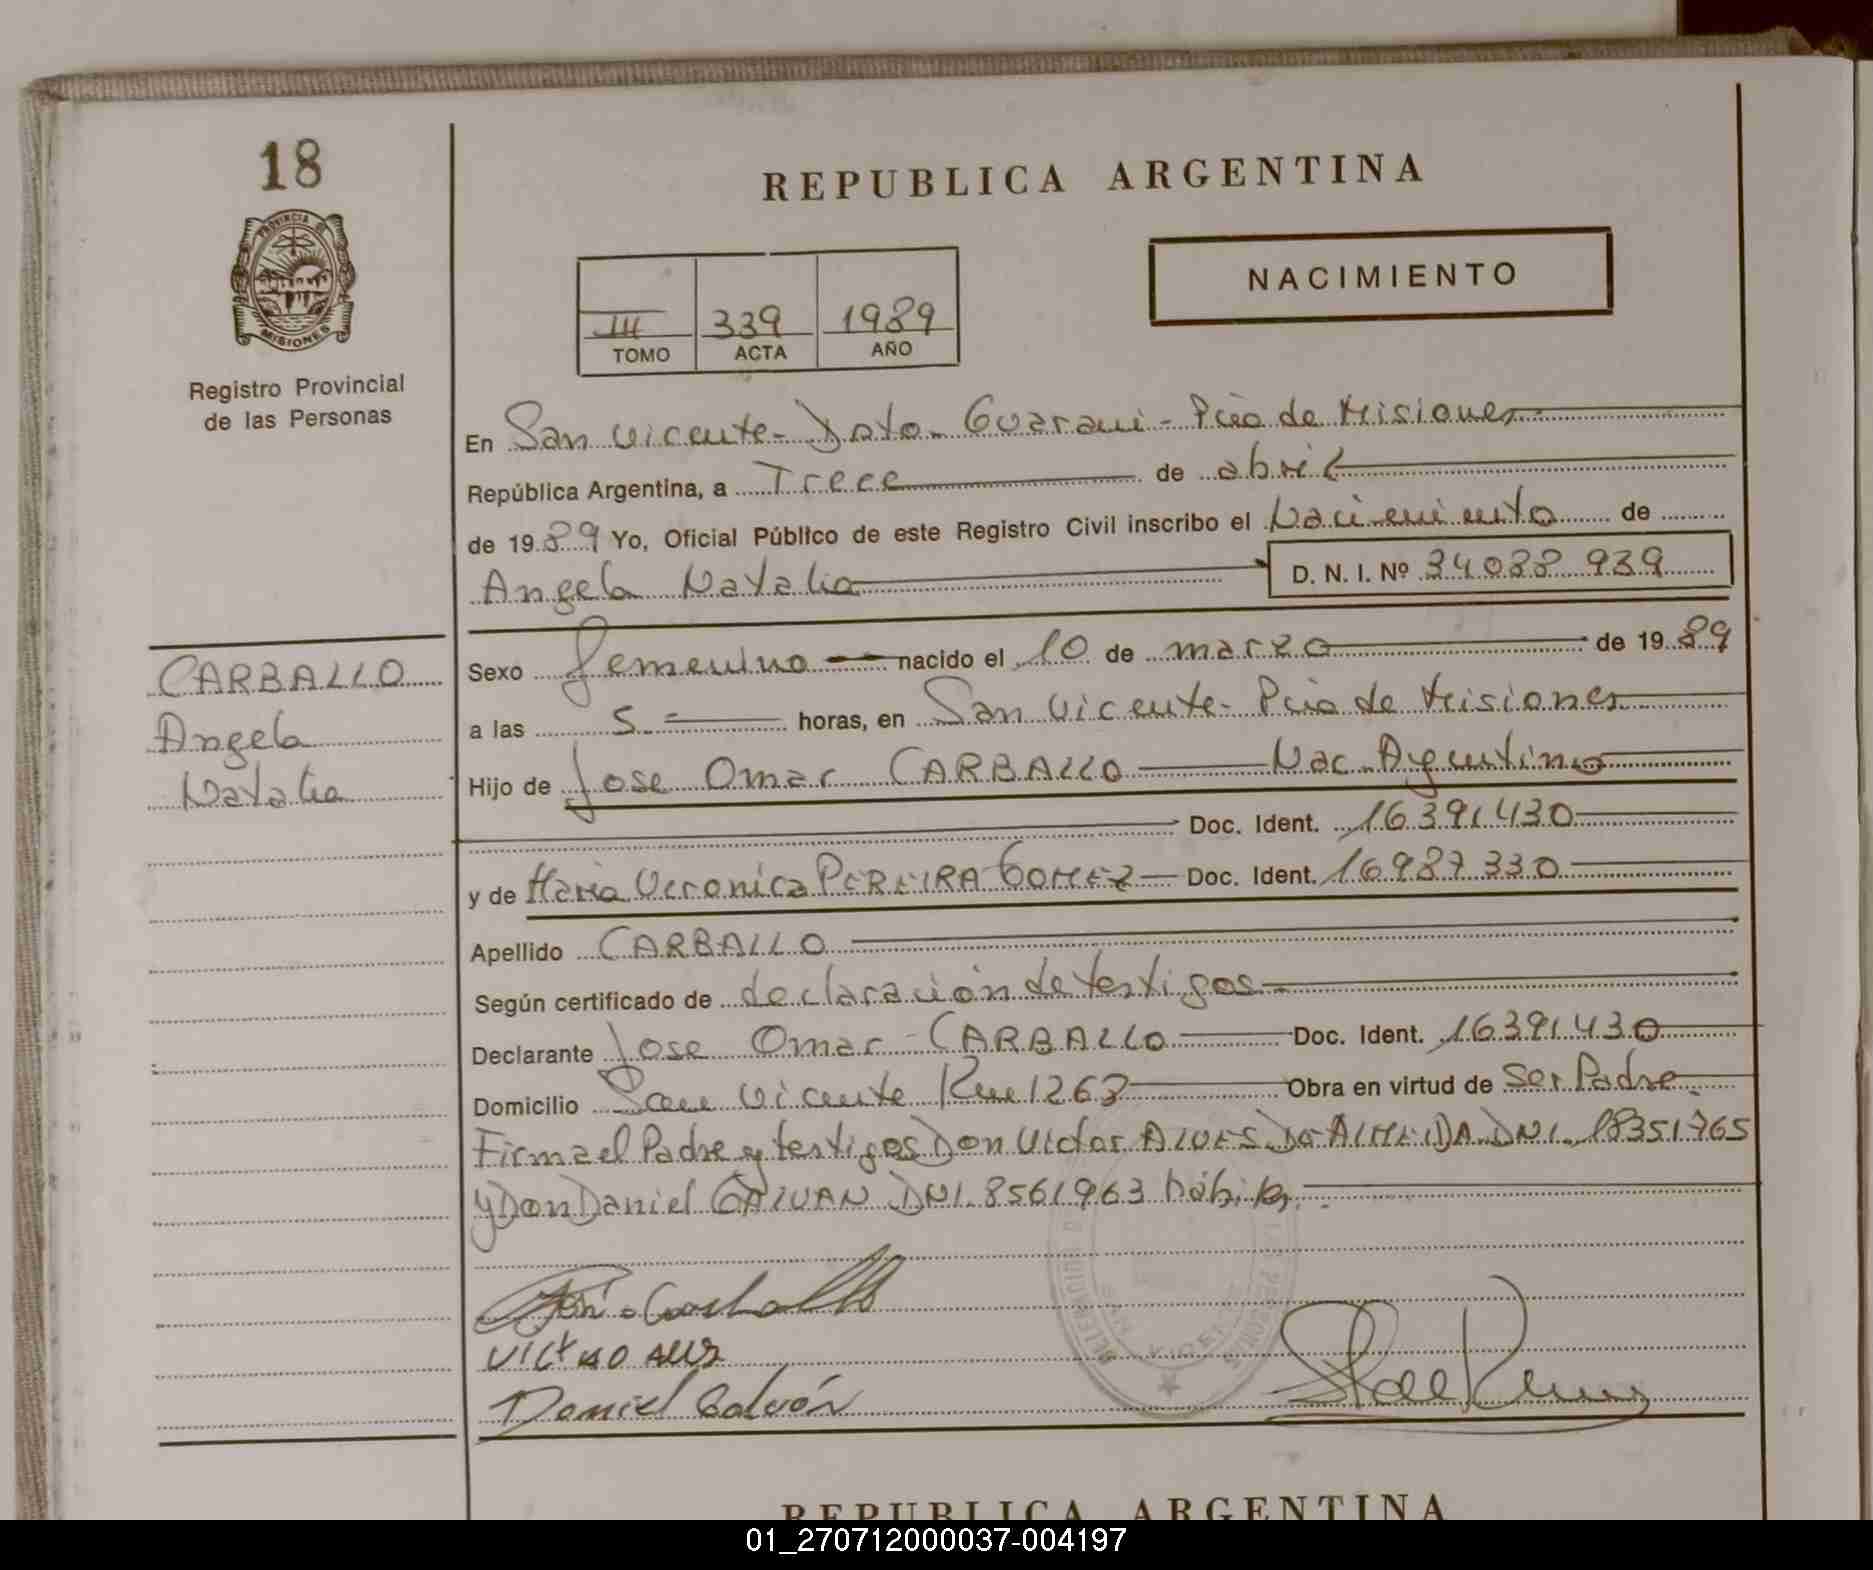 18
REPUBLICA ARGENTINA
PROVINCIA DE
MISIONES
Registro Provincial
de las Personas
III 339 1989
TOMO ACTA AÑO
NACIMIENTO
En San Vicente - Dpto. Guarani - Pcia de Misiones
República Argentina, a Trece de abril
de 1989 Yo, Oficial Público de este Registro Civil inscribo el Nacimiento de
Angela Natalia D. N. I. Nº 34088 939
CARBALLO
Angela
Natalia
Sexo femenino nacido el 10 de marzo de 1989
a las 5 horas, en San Vicente - Pcia de Misiones
Hijo de Jose Omar CARBALLO Nac. Argentino
Doc. Ident. 16391430
y de Maria Veronica PEREIRA GOMEZ Doc. Ident. 16987330
Apellido CARBALLO
Según certificado de declaración de testigos
Declarante Jose Omar CARBALLO Doc. Ident. 16391430
Domicilio San Vicente Km 1263 Obra en virtud de Ser Padre
Firma el Padre y testigos Don Victor ALVES De ALMEIDA DNI. 18351765
y Don Daniel GALVAN DNI. 8561963 hábiles
José O Carballo
Daniel Galván
REPUBLICA ARGENTINA
01_270712000037-004197